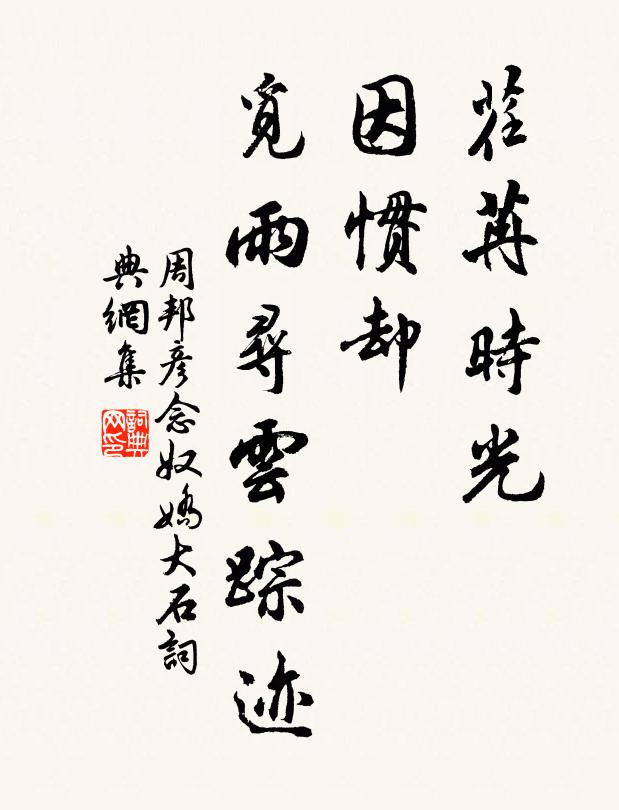 荏苒時光
因慣却
覓雨尋雲踪迹
周邦彦念奴嬌大石詞
典網集
詞典网印